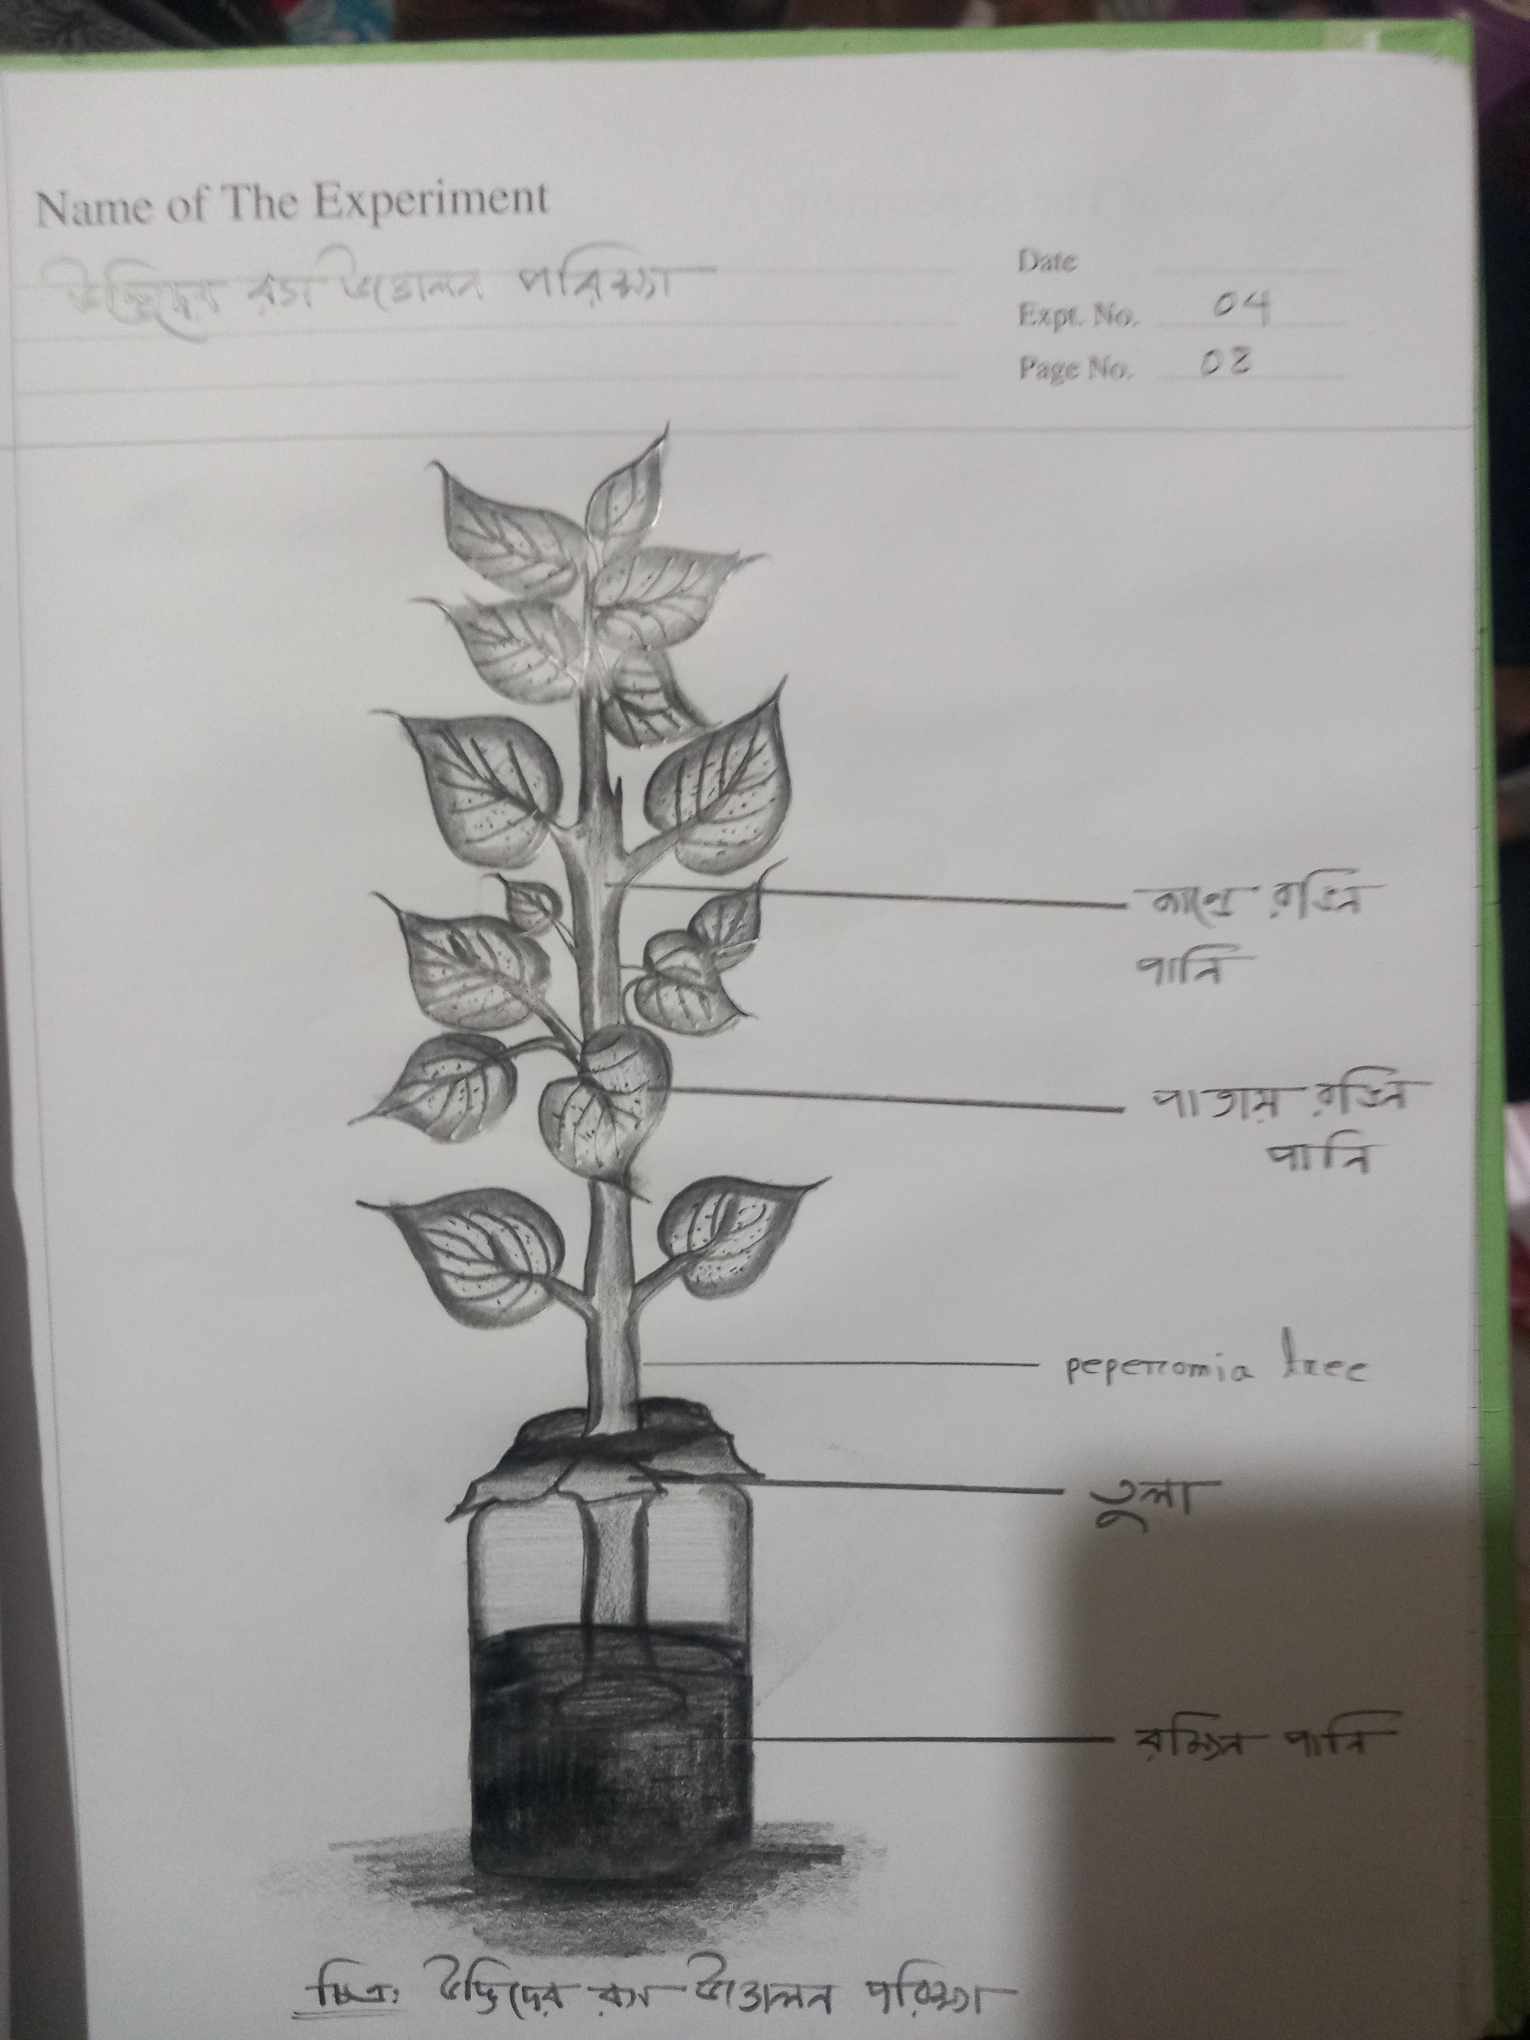 Name of The Experiment
উদ্ভিদের রস উত্তোলন পরিক্ষা
Date
Expt. No. 04
Page No. 08
কান্ডে রঙিন
পানি
পাতায় রঙিন
পানি
peperromia tree
তুলা
রঙ্গিন পানি
চিত্র: উদ্ভিদের রস উত্তোলন পরিক্ষা